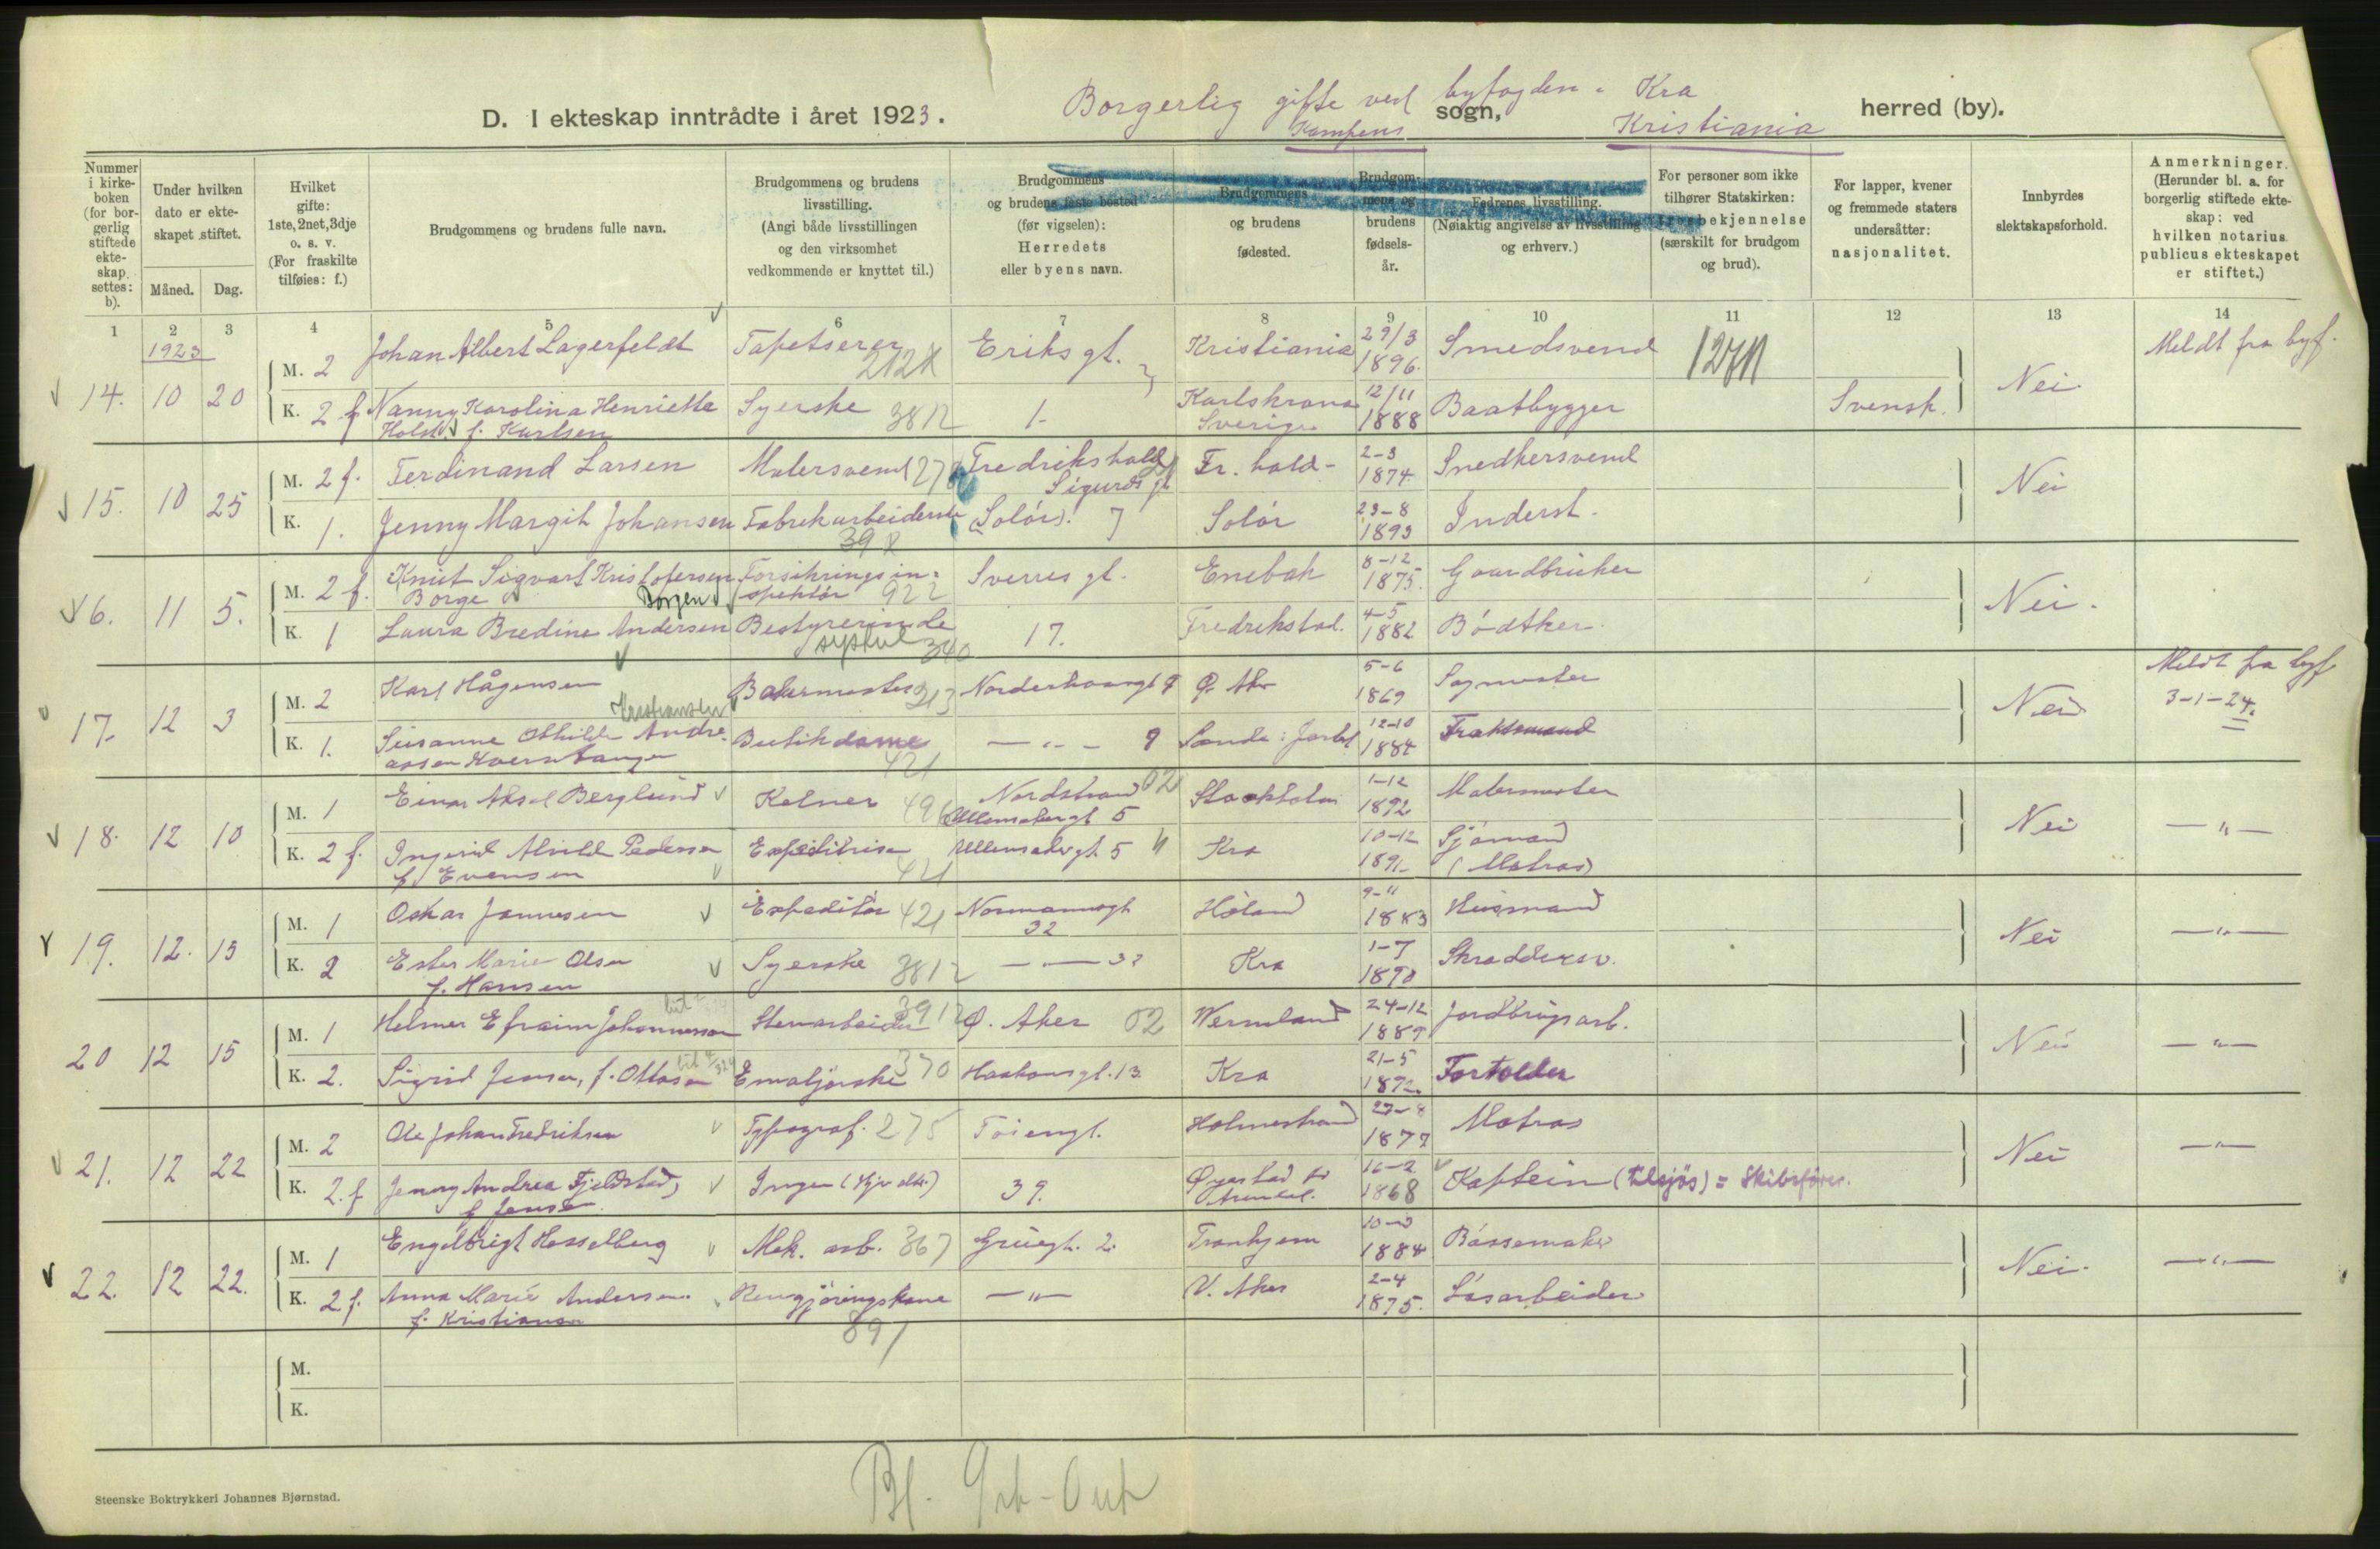 Borgerlig gifte ved byfogden i Kra
D. I ekteskap inntrådte i året 1923. Kampens sogn, Kristiania herred (by).
Nummer i kirkeboken (for borgerlig stiftede ekteskap settes: b).
Under hvilken dato er ekteskapet stiftet.
Måned. Dag.
Hvilket gifte: 1ste, 2net, 3dje o. s. v. (For fraskilte tilføies: f.)
Brudgommens og brudens fulle navn.
Brudgommens og brudens livsstilling. (Angi både livsstillingen og den virksomhet vedkommende er knyttet til.)
Brudgommens og brudens faste bosted (før vigselen): Herredets eller byens navn.
Brudgommens og brudens fødested.
Brudgommens og brudens fødselsår.
Fedrenes livsstilling. (Nøiaktig angivelse av livsstilling og erhverv.)
For personer som ikke tilhører Statskirken: Trosbekjennelse (særskilt for brudgom og brud).
For lapper, kvener og fremmede staters undersåtter: nasjonalitet.
Innbyrdes slektskapsforhold.
Anmerkninger. (Herunder bl. a. for borgerlig stiftede ekteskap: ved hvilken notarius publicus ekteskapet er stiftet.)
1 2 3 4 5 6 7 8 9 10 11 12 13 14
1923
14. 10 20 M. 2 Johan Albert Lagerfeldt Tapetserer Eriks gt. Kristiania 29/3 1896. Smedsvend Nei. Meldt fra byf.
K. 2 f Nanny Karolina Henriette Holst f. Karlsen Syerske 3812 1. Karlskrona Sverige 12/11 1888 Baatbygger Svensk.
15. 10 25 M. 2 f. Ferdinand Larsen Malersvend Fredrikshald Sigurds gt Fr. hald - 2-3 1874. Snedkersvend Nei
K. 1. Jenny Margit Johansen Fabrikarbeiderske (Solør). 7 Solør 23-8 1893 Inderst.
16. 11 5. M. 2 f. Knut Sigvart Kristofersen Borge Borgen Forsikringsinspektør 922 Sverres gt. Enebak 8-12 1875. Gaardbruker Nei.
K. 1 Laura Bredine Andersen Bestyrerinde syskol 340 17. Fredrikstad. 4-5 1882 Bødtker.
17. 12 3 M. 2 Karl Hågensen Norderhovgt 9 Ø. Aker 5-6 1869 Sagmester Nei Meldt fra byf 3-1-24.
K. 1. Susanne Othilde Andreassen Butikdame 421 - " - 9 Sande i Jarlsb 12-10 1884
18. 12 10 M. 1 Einar Aksel Berglund Kelner 496 Nordstrand 02 Ullensakergt 5 Stockholm 1-12 1892 Malermester Nei - " -
K. 2 f. Ingerid Alvilde Pedersen f. Evensen Expeditrise 421 Ullensakergt. 5 Kra 10-12 Sjømand (Matros)
19. 12. 13 M. 1 Oskar Johnnesen Expeditør 421 Normannsgt 32 Høland 9-11 1883 Husmand Nei - " -
K. 2 Ester Marie Olsen f. Hansen Syerske 3812 - " - 32 Kra 1-7 Skreddersv.
20 12 15 M. 1 Helmer Efraim Johannesson Stenarbeider Ø. Aker 02 Wermland 24-12 1889 Jordbrugsarb. Nei - " -
K. 2. Sigrid Jensen, f. Ottosen Emaljørske 370 Haakonsgt. 13 Kra 21-5 Fortolder
21. 12 22 M. 2 Ole Johan Fredriksen Typograf. 275 Tøiengt. Holmestrand 23-8 1877 Matros Nei - " -
K. 2. f Jenny Andrea Fjeldstad, f. Jensen Ingen 39. 16-2 1868 Kaptein (tilsjøs) = Skibsfører.
22. 12 22. M. 1 Engelbrigt Hesselberg Mek. arb. 367 Grüegt. 2. Tronhjem 1884 Bøssemaker Nei. - " -
K. 2 f. Anna Marie Andersen. f. Kristiansen Rengjøringskone 891 - " - V. Aker 2-4 1875. Løsarbeider
M.
K.
Steenske Boktrykkeri Johannes Bjørnstad.